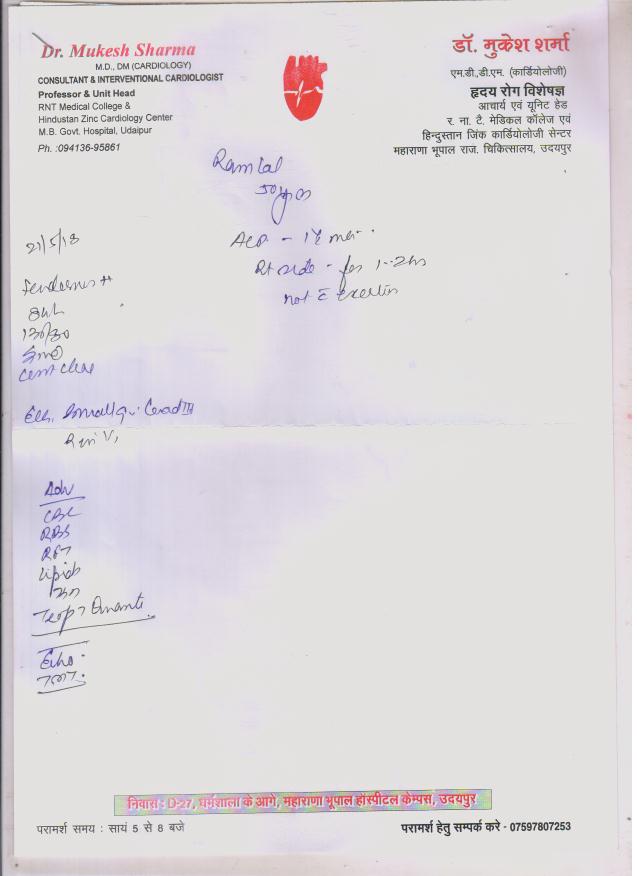 Dr. Mukesh Sharma
M.D., DM (CARDIOLOGY)
CONSULTANT & INTERVENTIONAL CARDIOLOGIST
Professor & Unit Head
RNT Medical College &
Hindustan Zinc Cardiology Center
M.B. Govt. Hospital, Udaipur
Ph. :094136-95861
डॉ. मुकेश शर्मा
एम.डी.,डी.एम. (कार्डियोलोजी)
हृदय रोग विशेषज्ञ
आचार्य एवं यूनिट हेड
र. ना. टै. मेडिकल कॉलेज एवं
हिन्दुस्तान जिंक कार्डियोलोजी सेन्टर
महाराणा भूपाल राज. चिकित्सालय, उदयपुर
Ramlal
21/5/18
Rt side - for 1-2hrs
not c̄ exertion
130/80
Lead III
Adv
CBC
RBS
RFT
Lipids
Trop T Quanti
Echo
TMT
निवास : D-27, धर्मशाला के आगे, महाराणा भूपाल हॉस्पीटल केम्पस, उदयपुर
परामर्श समय : सायं 5 से 8 बजे
परामर्श हेतु सम्पर्क करे - 07597807253